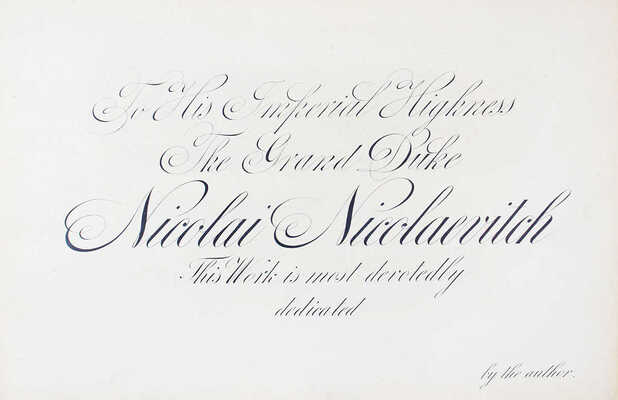 To His Imperial Highness
The Grand Duke
Nicolai Nicolaevitch
This Work is most devotedly
dedicated
by the author.